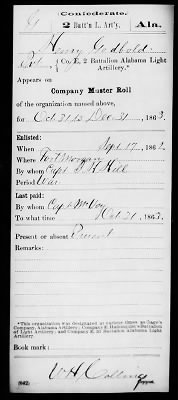 Confederate.
G 2 Batt'n L. Art'y. Ala.
Henry Godbold
Pvt., Co. E, 2 Battalion Alabama Light
Artillery.*
Appears on
Company Muster Roll
of the organization named above,
for Oct 31 to Dec 31, 1863.
Enlisted:
When Sept 17, 186
Where Fort Morgan
By whom Capt
Period War
Last paid:
By whom Capt McVoy
To what time Oct 31, 1863.
Present or absent Present
Remarks:
*This organization was designated at various times as Gage's
Company, Alabama Artillery; Company E
of Light Artillery; and Company E, 22 Battalion Alabama
Light Artillery.
Book mark:
W H
(642) Copyist.